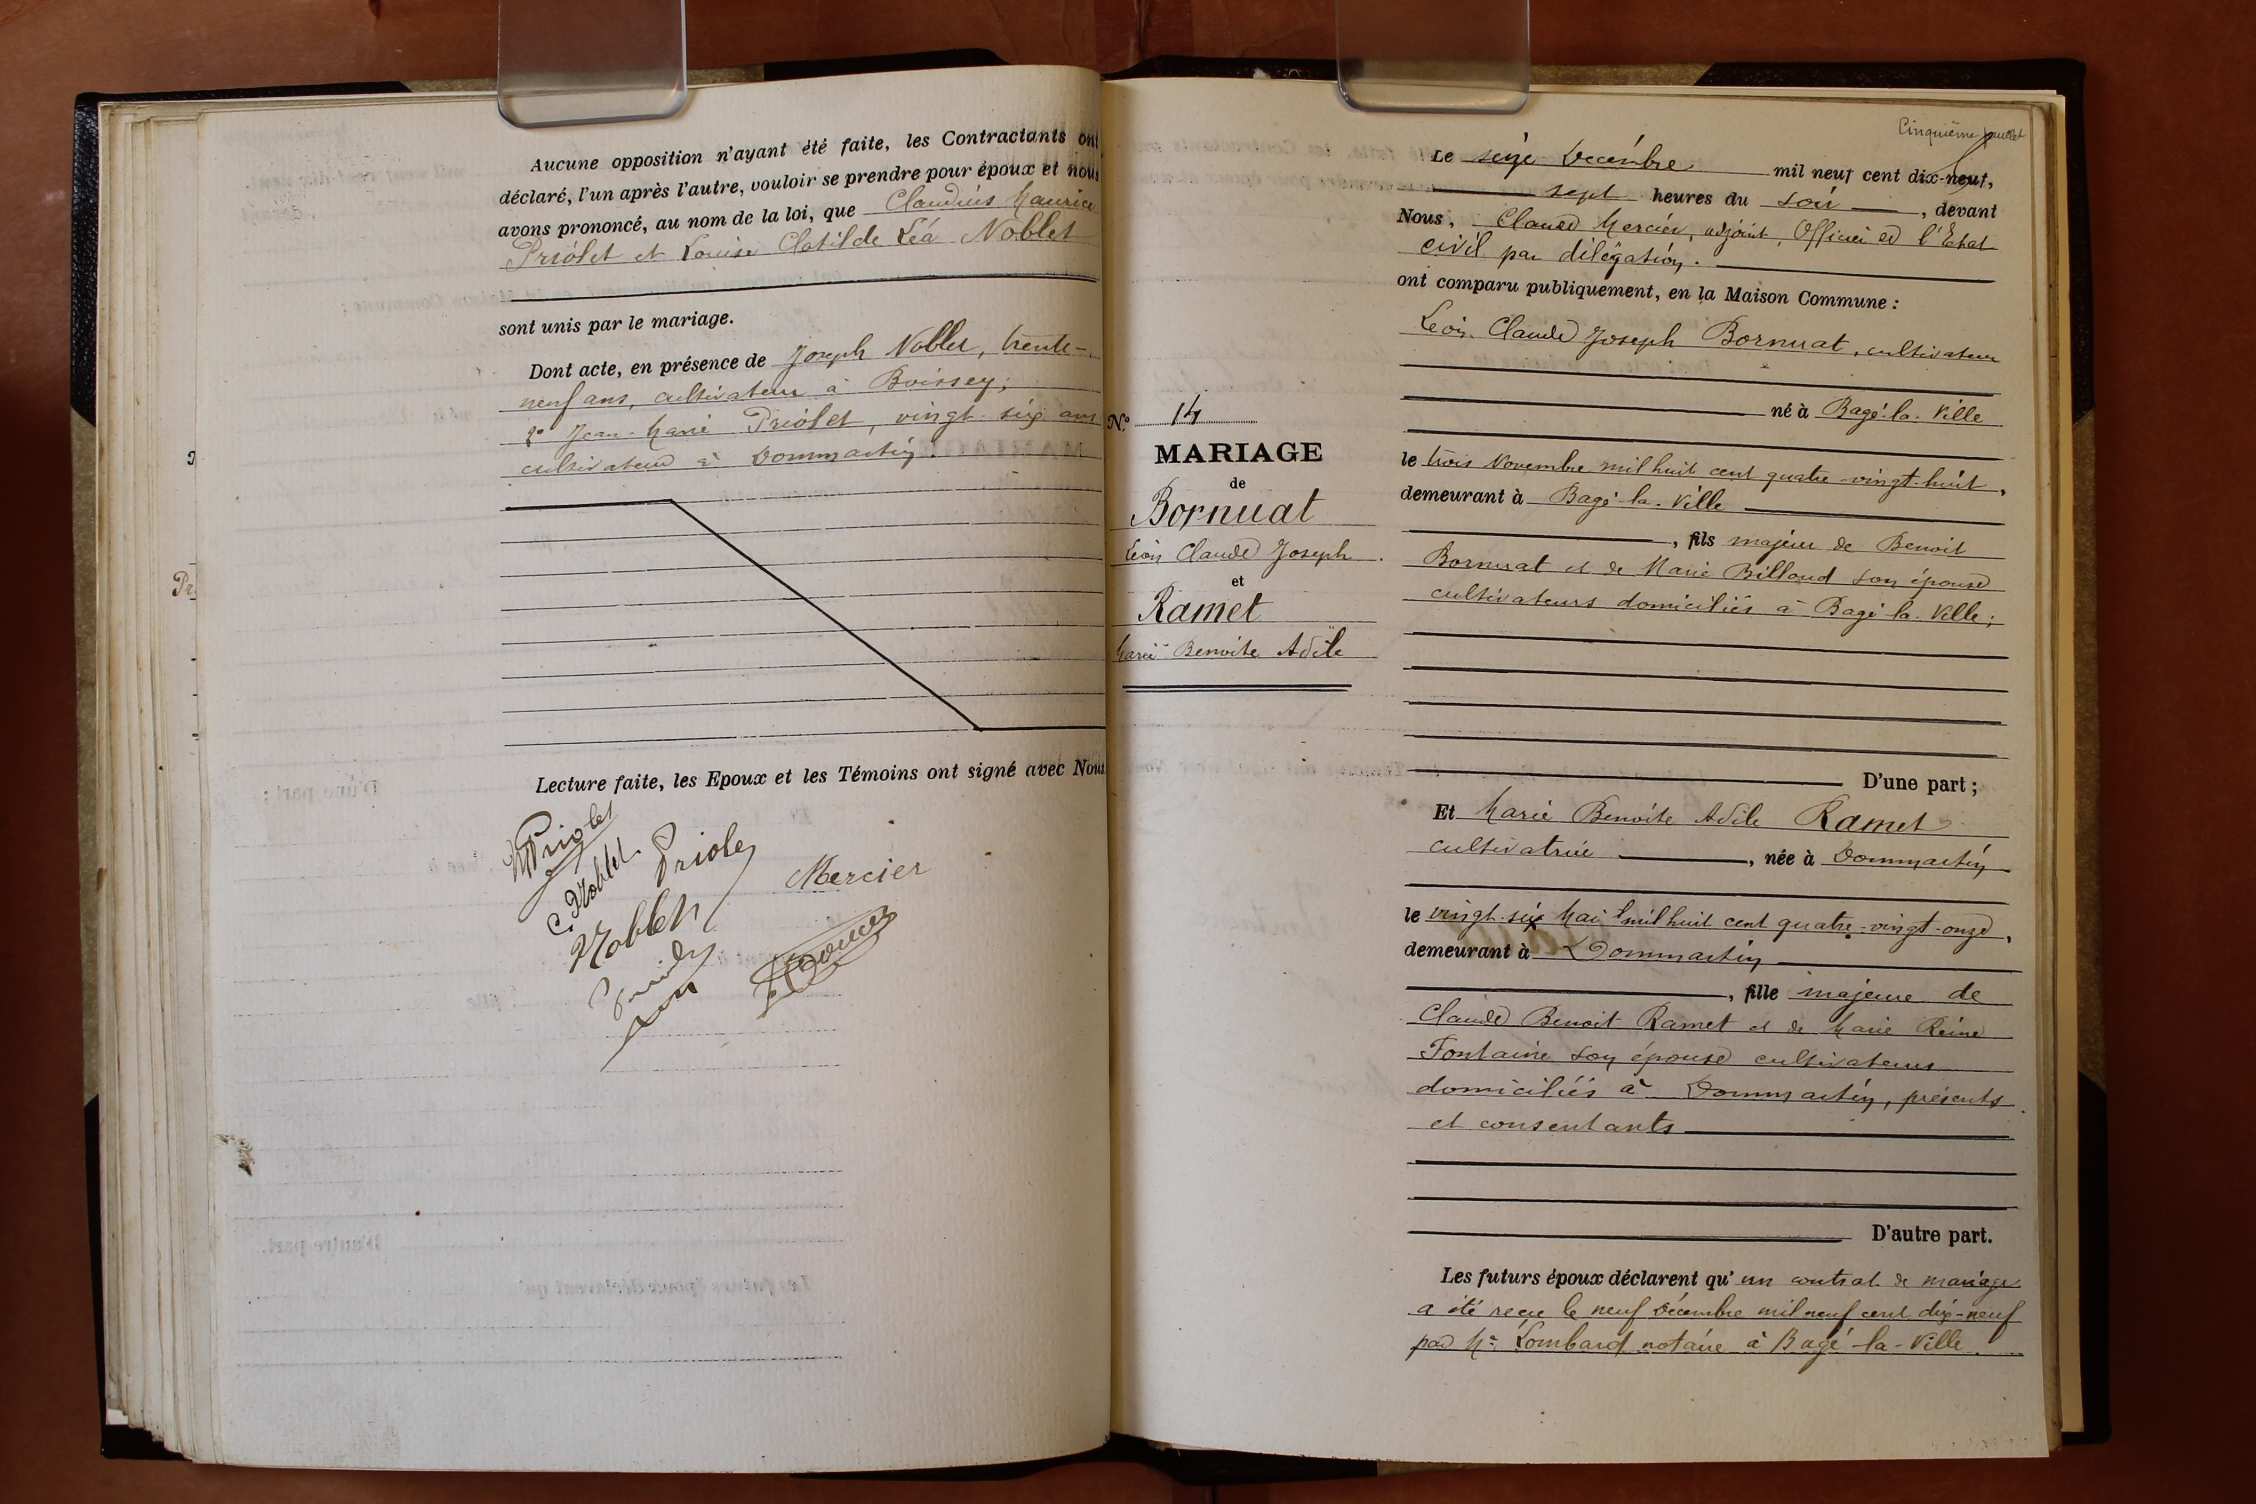 Aucune opposition n'ayant été faite, les Contractants ont
déclaré, l'un après l'autre, vouloir se prendre pour époux et nous
avons prononcé, au nom de la loi, que Claudius Maurice
Priolet et Louise Clotilde Léa Noblet
sont unis par le mariage.
Dont acte, en présence de Joseph Noblet, trente-
neuf ans, cultivateur à Boissey;
2° Jean-Marie Priolet, vingt-six ans
cultivateur à Dommartin.
Lecture faite, les Epoux et les Témoins ont signé avec Nous
Priolet
C. Noblet
Priolet
Mercier
Noblet
Cinquième feuillet
Le seize Décembre mil neuf cent dix-neuf,
sept heures du soir, devant
Nous, Claude Mercier, adjoint, Officier de l'Etat
civil par délégation.
ont comparu publiquement, en la Maison Commune :
Léon Claude Joseph Bornuat, cultivateur
né à Bagé-la-Ville
le trois Novembre mil huit cent quatre-vingt-huit,
demeurant à Bagé-la-Ville
, fils majeur de Benoit
Bornuat et de Marie Billoud son épouse
cultivateurs domiciliés à Bagé-la-Ville;
D'une part ;
N° 14
MARIAGE
de
Bornuat
Léon Claude Joseph
et
Ramet
Marie Benoite Adèle
Et Marie Benoite Adèle Ramet
cultivatrice, née à Dommartin
le vingt-six Mai mil huit cent quatre-vingt-onze,
demeurant à Dommartin
, fille majeure de
Claude Benoit Ramet et de Marie Reine
Fontaine son épouse cultivateurs
domiciliés à Dommartin, présents
et consentants
D'autre part.
Les futurs époux déclarent qu'un contrat de mariage
a été reçu le neuf Décembre mil neuf cent dix-neuf
par Me Lombard notaire à Bagé-la-Ville.